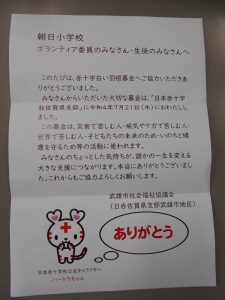 朝日小学校
ボランティア委員のみなさん・生徒のみなさんへ
このたびは、赤十字白い羽根募金へご協力いただきありがとうございました。
みなさんからいただいた大切な募金は、「日本赤十字社佐賀県支部」に令和4年7月21日(木)におわたししました。
この募金は、災害で苦しむ人・病気やケガで苦しむ人・世界で苦しい人・子どもたちの未来のため・いのちと健康を守るため等の活動に使われます。
みなさんのちょっとした気持ちが、誰かの一生を変える大きな支援につながります。本当にありがとうございました。これからもご協力よろしくお願いします。
武雄市社会福祉協議会
(日赤佐賀県支部武雄市地区)
ありがとう
日本赤十字社公式キャラクター
ハートラちゃん